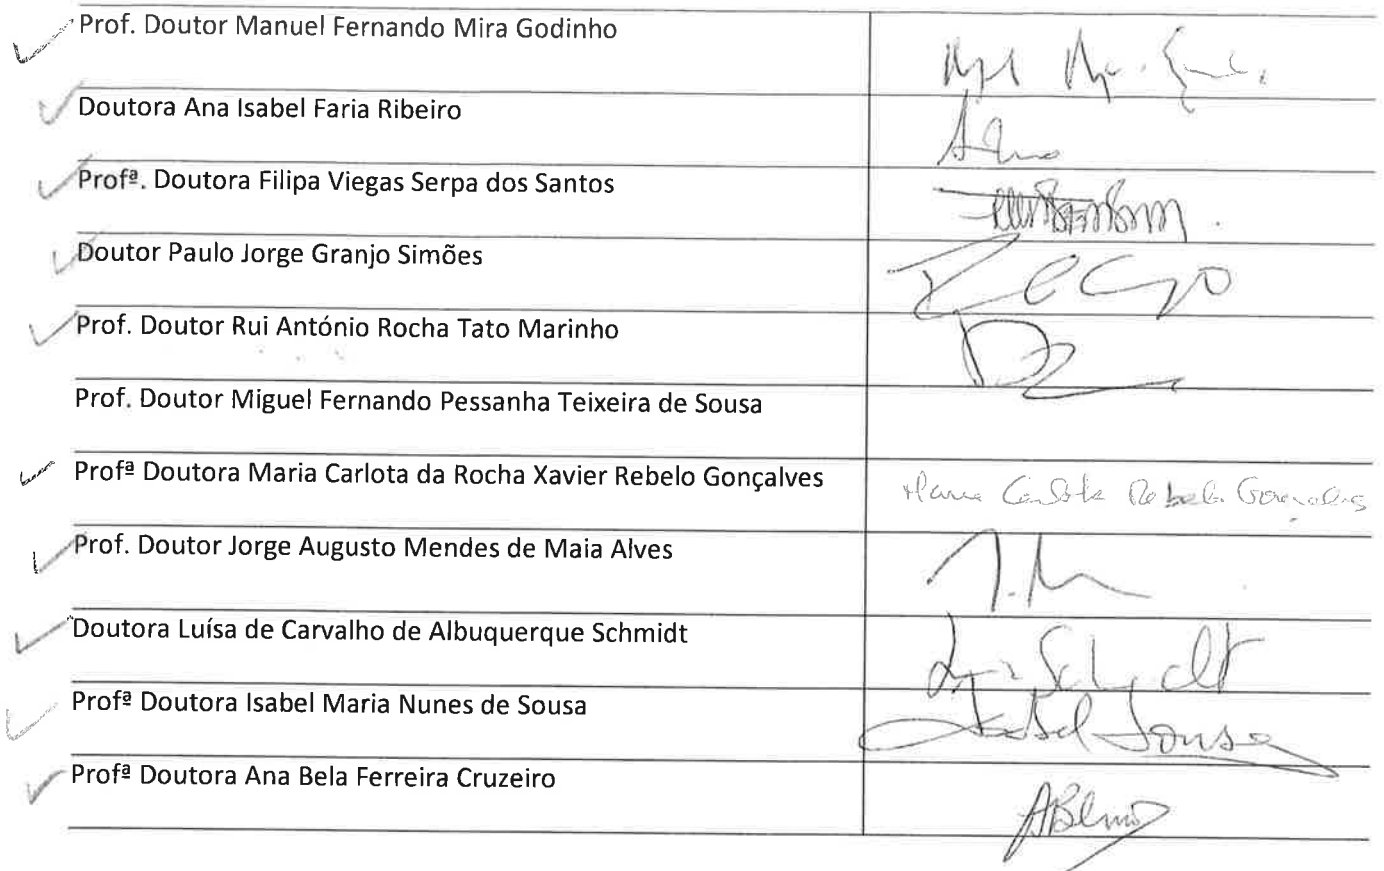 Prof. Doutor Manuel Fernando Mira Godinho
Doutora Ana Isabel Faria Ribeiro
Profª. Doutora Filipa Viegas Serpa dos Santos
Doutor Paulo Jorge Granjo Simões
Prof. Doutor Rui António Rocha Tato Marinho
Prof. Doutor Miguel Fernando Pessanha Teixeira de Sousa
Profª Doutora Maria Carlota da Rocha Xavier Rebelo Gonçalves Maria Carlota Rebelo Gonçalves
Prof. Doutor Jorge Augusto Mendes de Maia Alves
Doutora Luísa de Carvalho de Albuquerque Schmidt Schmidt
Profª Doutora Isabel Maria Nunes de Sousa Isabel Sousa
Profª Doutora Ana Bela Ferreira Cruzeiro